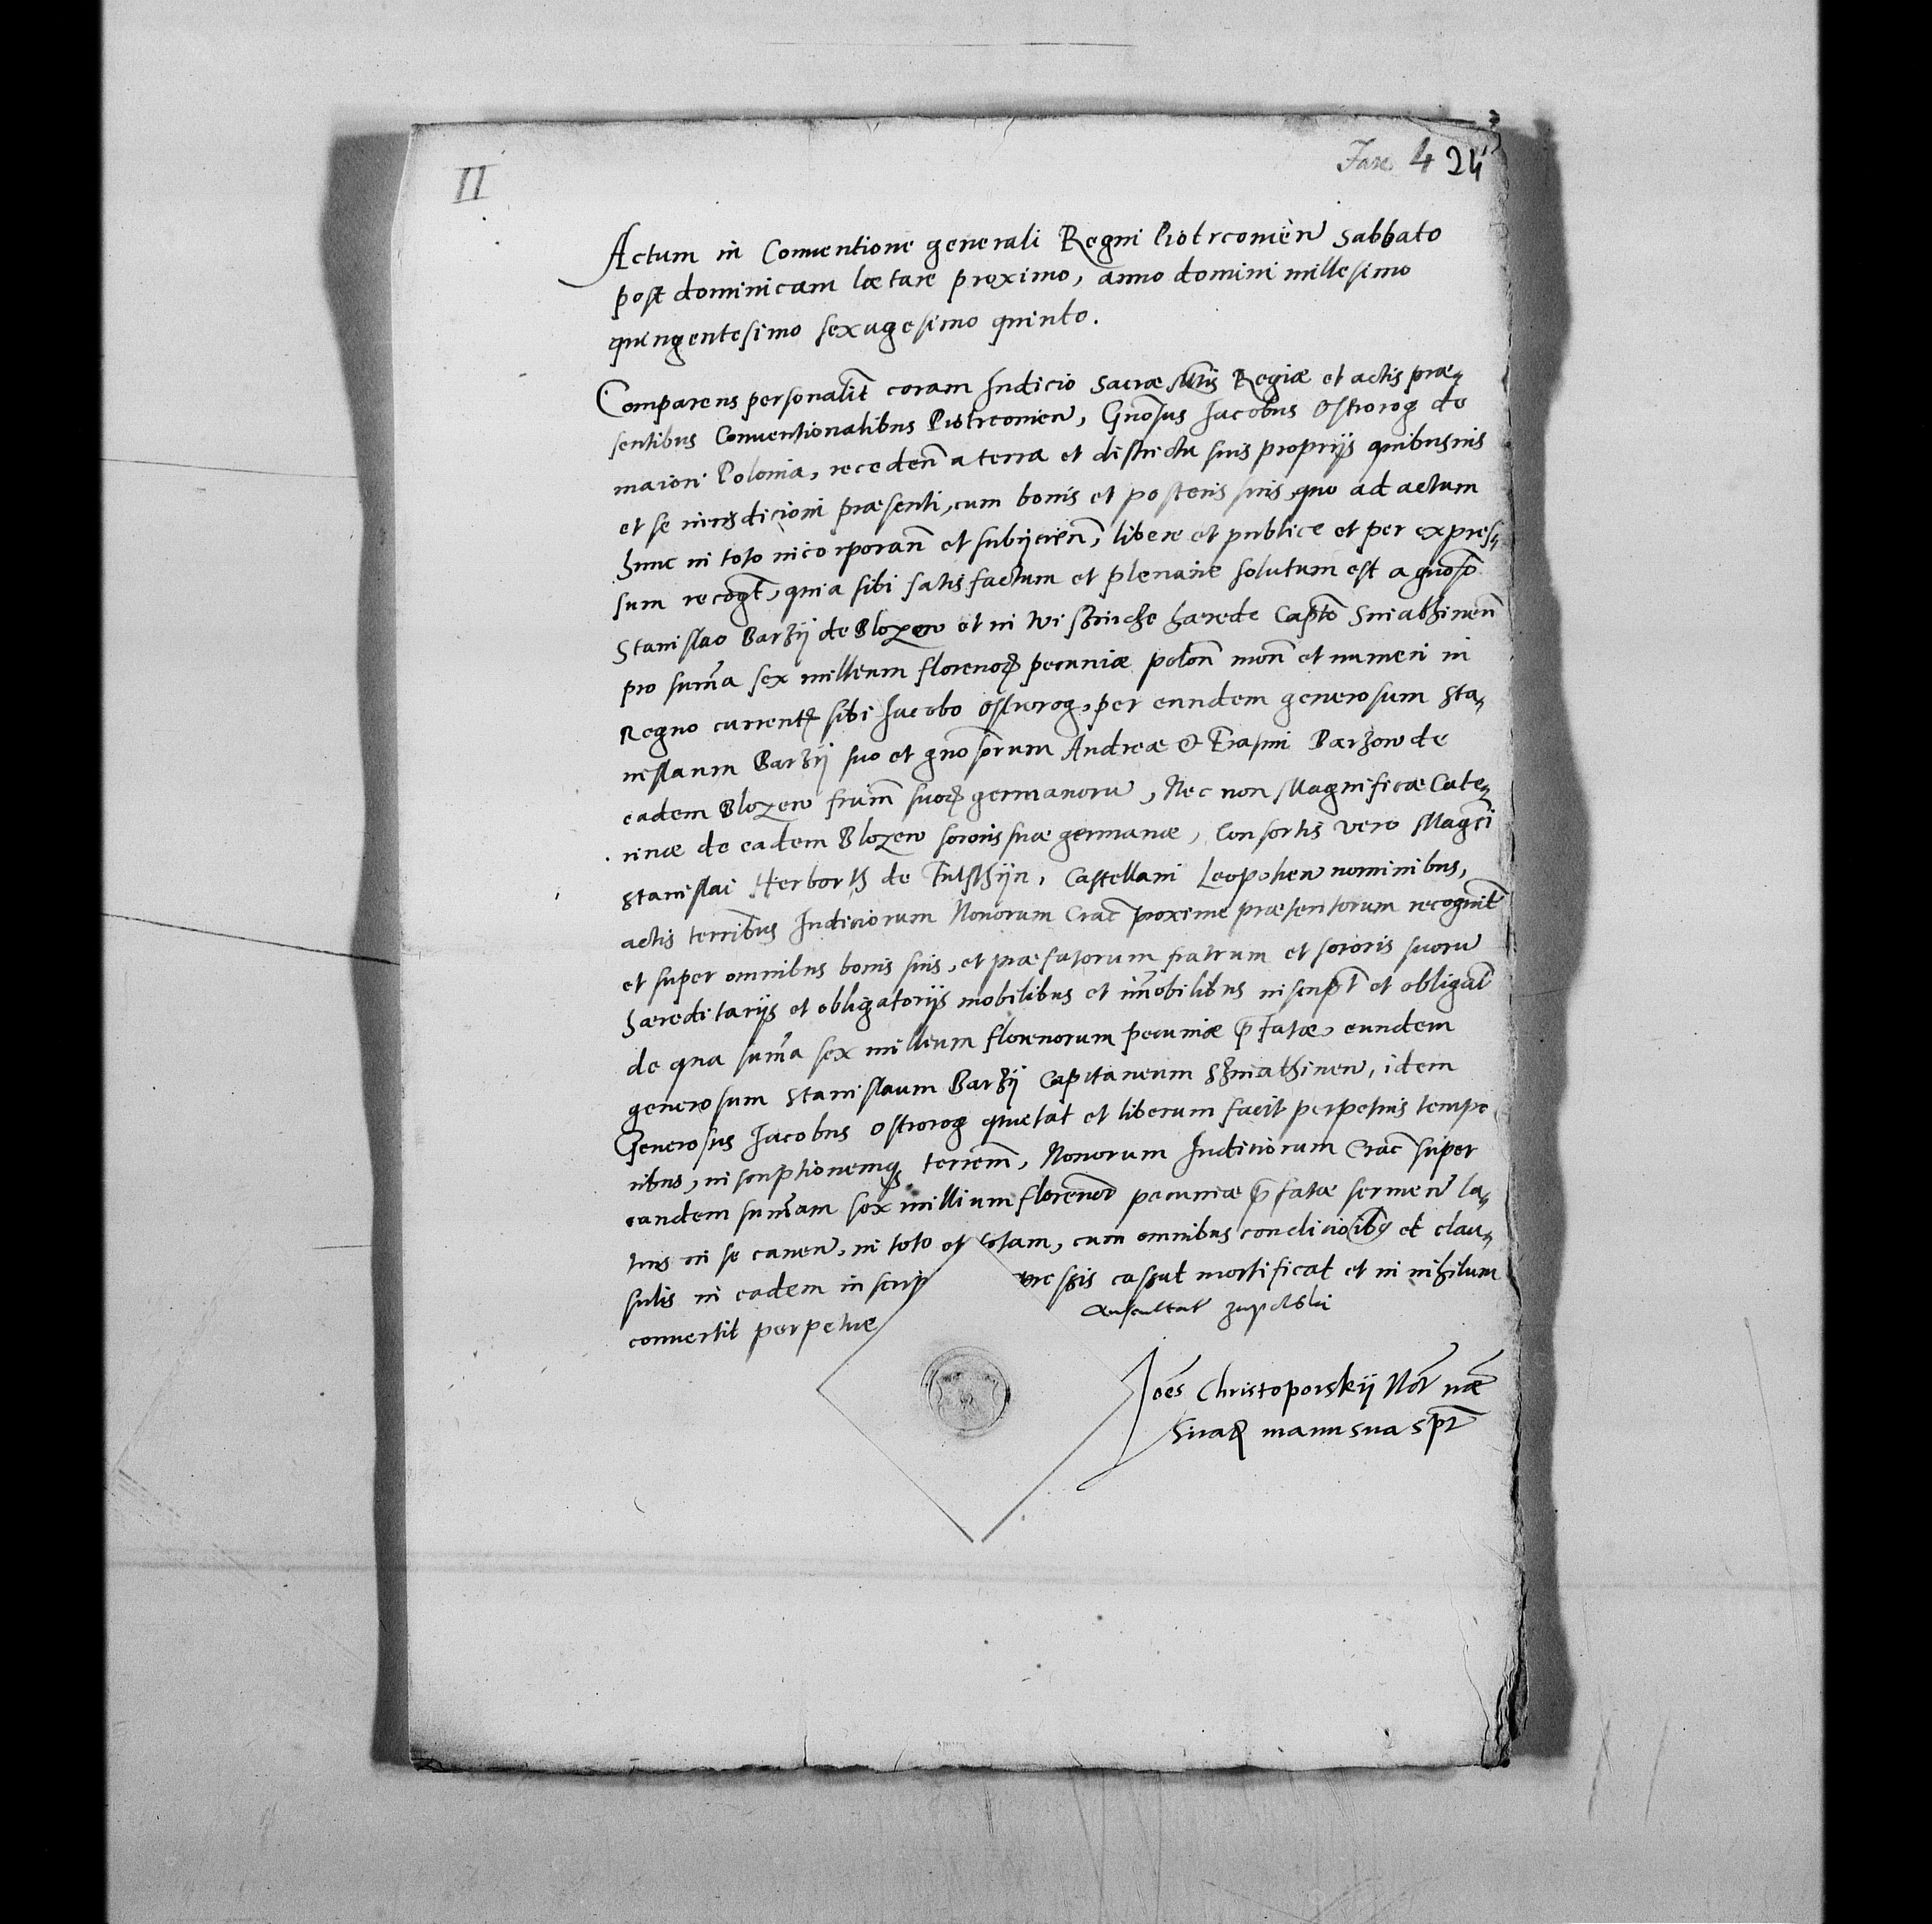 II
Fasc 4 24
Actum in Conuentione generali Regni Piotrcouien̄ Sabbato
post dominicam lætare proximo, anno domini millesimo
quingentesimo sexagesimo quinto.
Comparens personalit̄ coram Iudicio Sacræ Mt̄is Regiæ et actis præ„
sentibus Conuentionalibus Piotrcouien̄, Gnōsus Iacobus Ostrorog de
maiori Polonia, receden̄ a terra et districtu suis proprijs quibusuis
et se iurisdicioni præsenti, cum bonis et posteris suis, quo ad actum
hunc in toto incorporan̄ et subijcien̄, libere et publice et per expres„
sum recogt̄, quia sibi satisfactum et plenarie solutum est a gnōso
Stanislao Barzij de Blozew et in Wisznicze hærede Capt̄o Sniathinen̄
pro sum̄a sex millium florenoꝝ pecuniæ polon̄ mon̄ et numeri in
Regno currentꝭ sibi Iacobo Ostrorog, per eundem generosum Sta„
nislaum Barzij suo et gnōsorum Andreæ & Erasmi Barzow de
eadem Blozew frum̄ suoꝝ germanorū, Nec non Magnificæ Cate„
rinæ de eadem Blozew sororis suæ germanæ, Consortis vero Magc̄i
Stanislai Herborth de Fulsthijn, Castellani Leopolien̄ nominibus,
actis terrībus Iudiciorum Nouorum Crac̄ proxime præteritorum recognit̄
et super omnibus bonis suis, et præfatorum fratrum et sororis suorū
hæreditarijs et obligatorijs mobilibus et im̄obilibus inscript̄ et obligat̄
de qua sum̄a sex millium florenorum pecuniæ p̄fatæ, eundem
generosum Stanislaum Barzij Capitaneum Szniathinen̄, idem
Generosus Iacobus Ostrorog quietat et liberum facit perpetuis tempo
ribus, inscriptionemqꝫ terrem̄, Nouorum Iudiciorum Crac̄ super
eandem sum̄am sex millium florenoꝝ pecuniæ p̄fatæ sermen̄ la„
tius in se canen̄, in toto et totam, cum omnibus condicioībꝫ et clau„
sulis in eadem inscrip nessis cassat mortificat et in nihilum
conuertit perpetue
Auscultat̄ zapolski
Ioēs Christoporskij Not̄
manu sua sp̄t